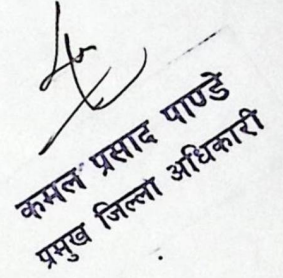 कमल प्रसाद पाण्डे
प्रमुख जिल्ला अधिकारी